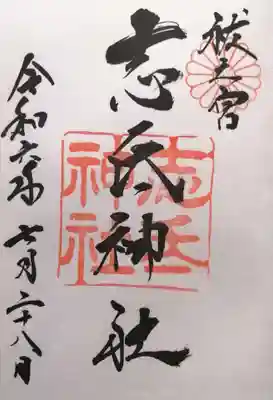 祓之宮
志氐神社
志氐神社
令和六年七月二十八日